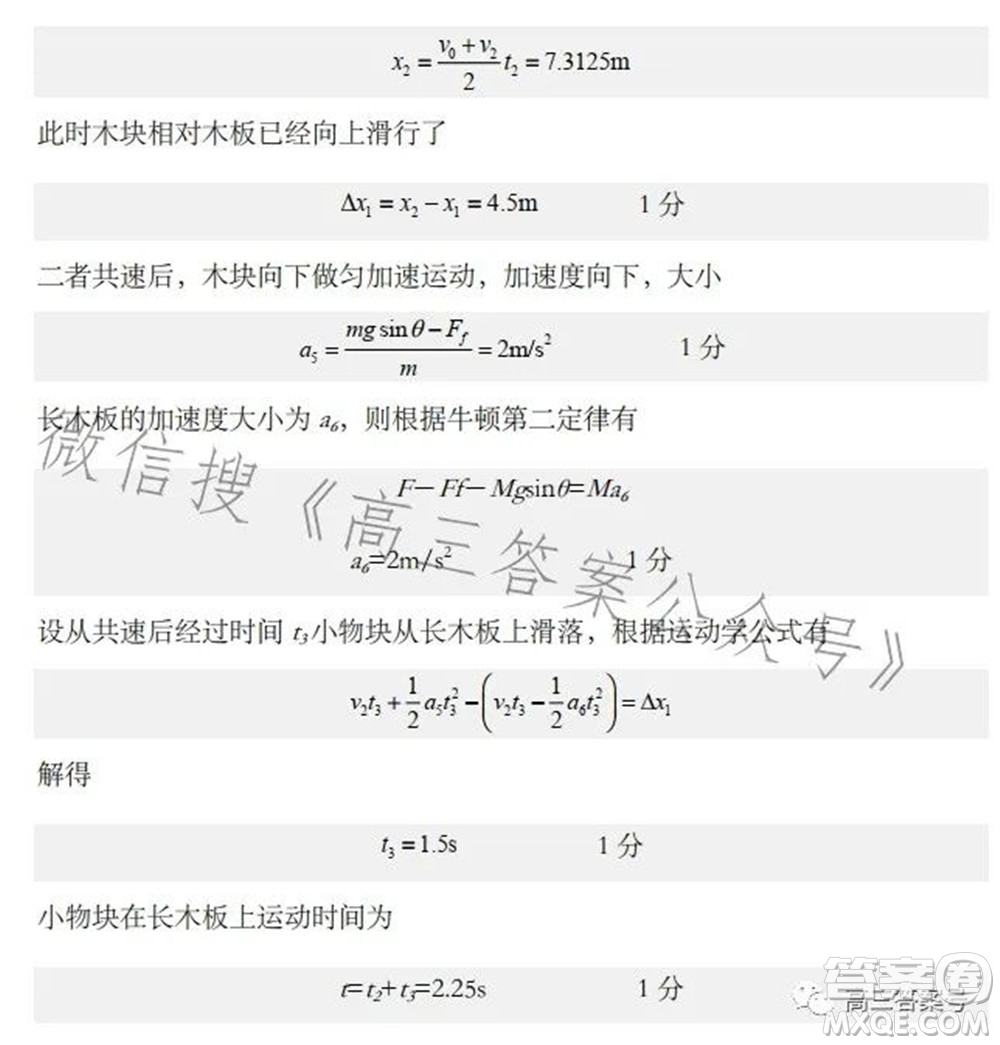 x₂ = (v₀ + v₂)/2 t₂ = 7.3125m
此时木块相对木板已经向上滑行了
Δx₁ = x₂ − x₁ = 4.5m 1 分
二者共速后，木块向下做匀加速运动，加速度向下，大小
a₅ = (mg sin θ − F_f)/m = 2m/s² 1 分
长木板的加速度大小为 a₆，则根据牛顿第二定律有
F— Ff— Mgsinθ=Ma₆
a₆=2m/s² 1 分
设从共速后经过时间 t₃小物块从长木板上滑落，根据运动学公式有
v₂t₃ + 1/2 a₅t₃² − (v₂t₃ − 1/2 a₆t₃²) = Δx₁
解得
t₃ = 1.5s 1 分
小物块在长木板上运动时间为
t=t₂+t₃=2.25s 1 分
微信搜《高三答案公众号》
高三答案号
答案圈
MXQE.COM